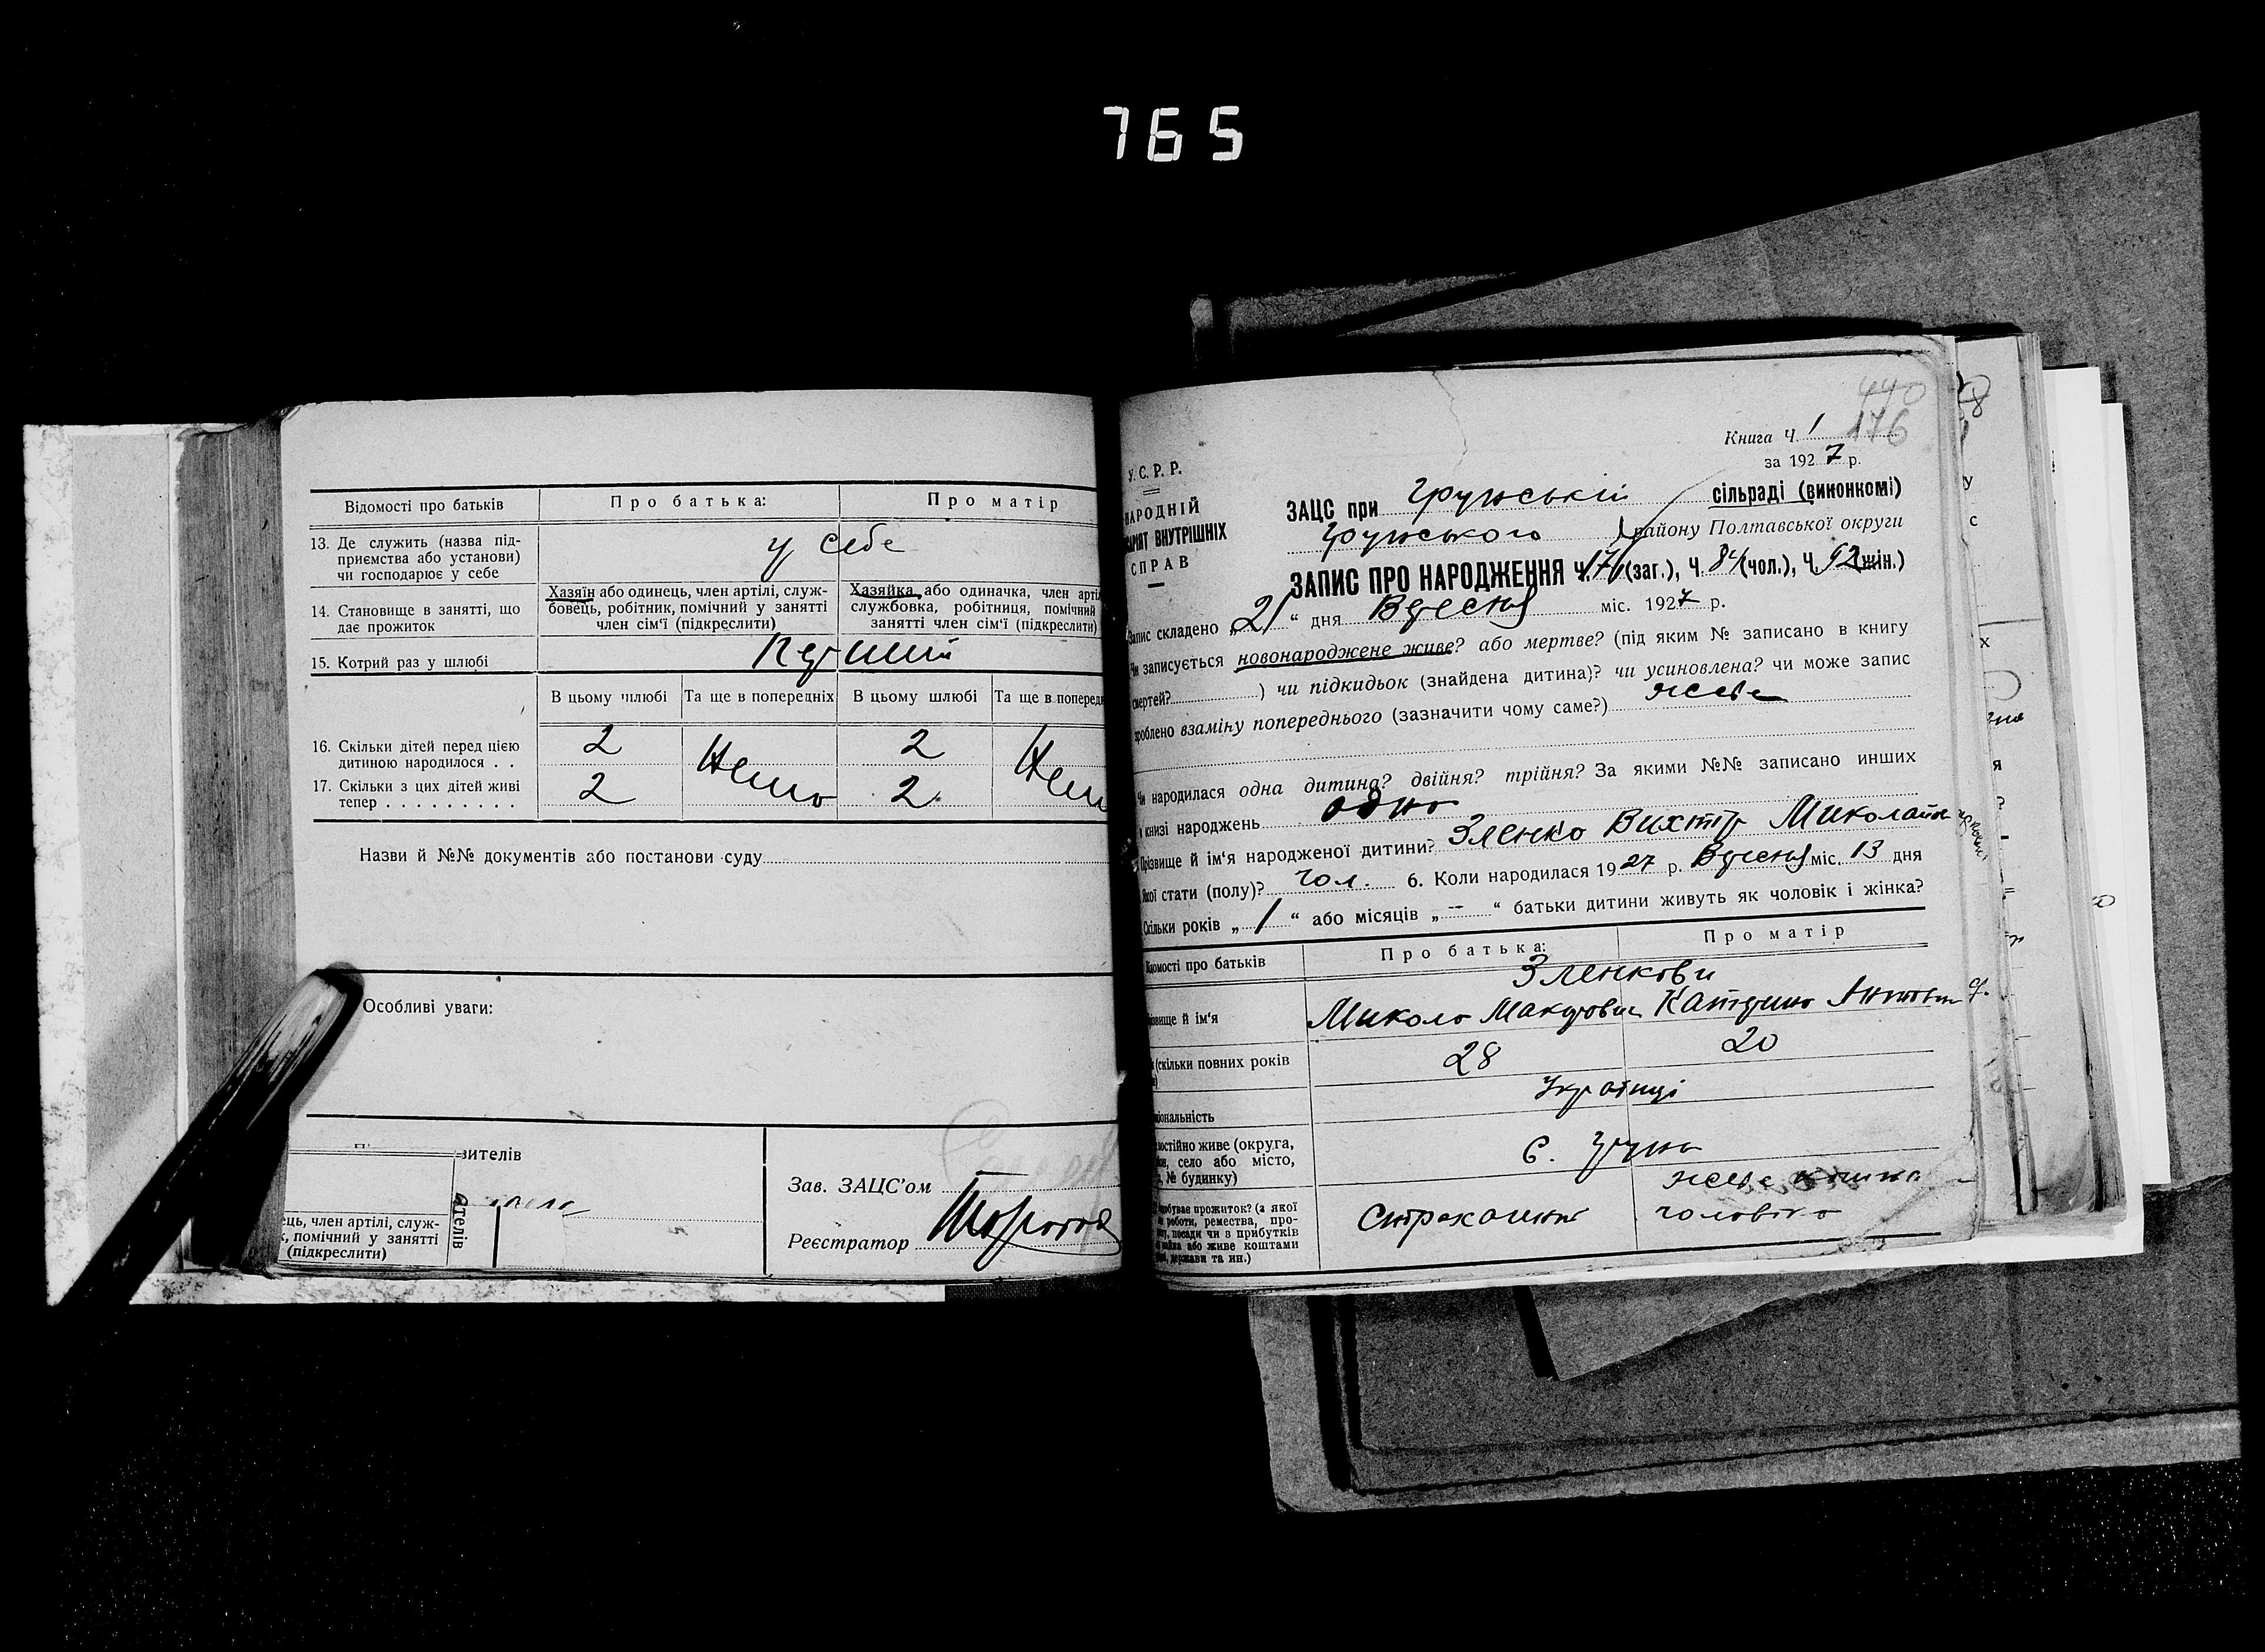 765
Відомості про батьків
Про батька:
Про матір
13. Де служить (назва під-
приємства або установи)
чи господарює у себе
у себе
14. Становище в занятті, що
дає прожиток
Хазяїн або одинець, член артілі, служ-
бовець, робітник, помічний у занятті
член сім'ї (підкреслити)
Хазяйка або одиначка, член арті
службовка, робітниця, помічний
занятті член сім'ї (підкреслити)
15. Котрий раз у шлюбі
Перший
В цьому шлюбі
Та ще в попередніх
В цьому шлюбі
Та ще в поперед
16. Скільки дітей перед цією
дитиною народилося . .
2
Нема
2
17. Скільки з цих дітей живі
тепер . . . . . . . . .
2
2
Назви й №№ документів або постанови суду
Особливі уваги:
вителів
ець, член артілі, служ-
к, помічний у занятті
(підкреслити)
ателів
Зав. ЗАЦС'ом
Реєстратор
440
176
Книга Ч. 1
за 1927 р.
У.С.Р.Р.
НАРОДНІЙ
ВНУТРІШНІХ
СПРАВ
ЗАЦС при Грунській сільраді (виконкомі)
Грунського району Полтавської округи
ЗАПИС ПРО НАРОДЖЕННЯ Ч. 176 (заг.), Ч. 84 (чол.), Ч. 92 (жін.)
Запис складено „21“ дня Вересня міс. 1927 р.
Чи записується новонароджене живе? або мертве? (під яким № записано в книгу
смертей? ) чи підкидьок (знайдена дитина)? чи усиновлена? чи може запис
зроблено взаміну попереднього (зазначити чому саме?) живе
Чи народилася одна дитина? двійня? трійня? За якими №№ записано инших
в книзі народжень одна
Прізвище й ім'я народженої дитини? Зленко Вихтір Миколаїв
Якої стати (полу)? чол. 6. Коли народилася 1927 р. Вересня міс. 13 дня
Скільки років „1“ або місяців „--“ батьки дитини живуть як чоловік і жінка?
Відомості про батьків
Про батька:
Про матір
Зленкови
ізвище й ім'я
Микола Макарович
Катерина Антонівна
(скільки повних років
28
20
ціональність
Українці
постійно живе (округа,
село або місто,
№ будинку)
с. Грунь
добуває прожиток? (з якої
роботи, ремества, про-
посади чи з прибутків
або живе коштами
держави та ин.)
чоловіка